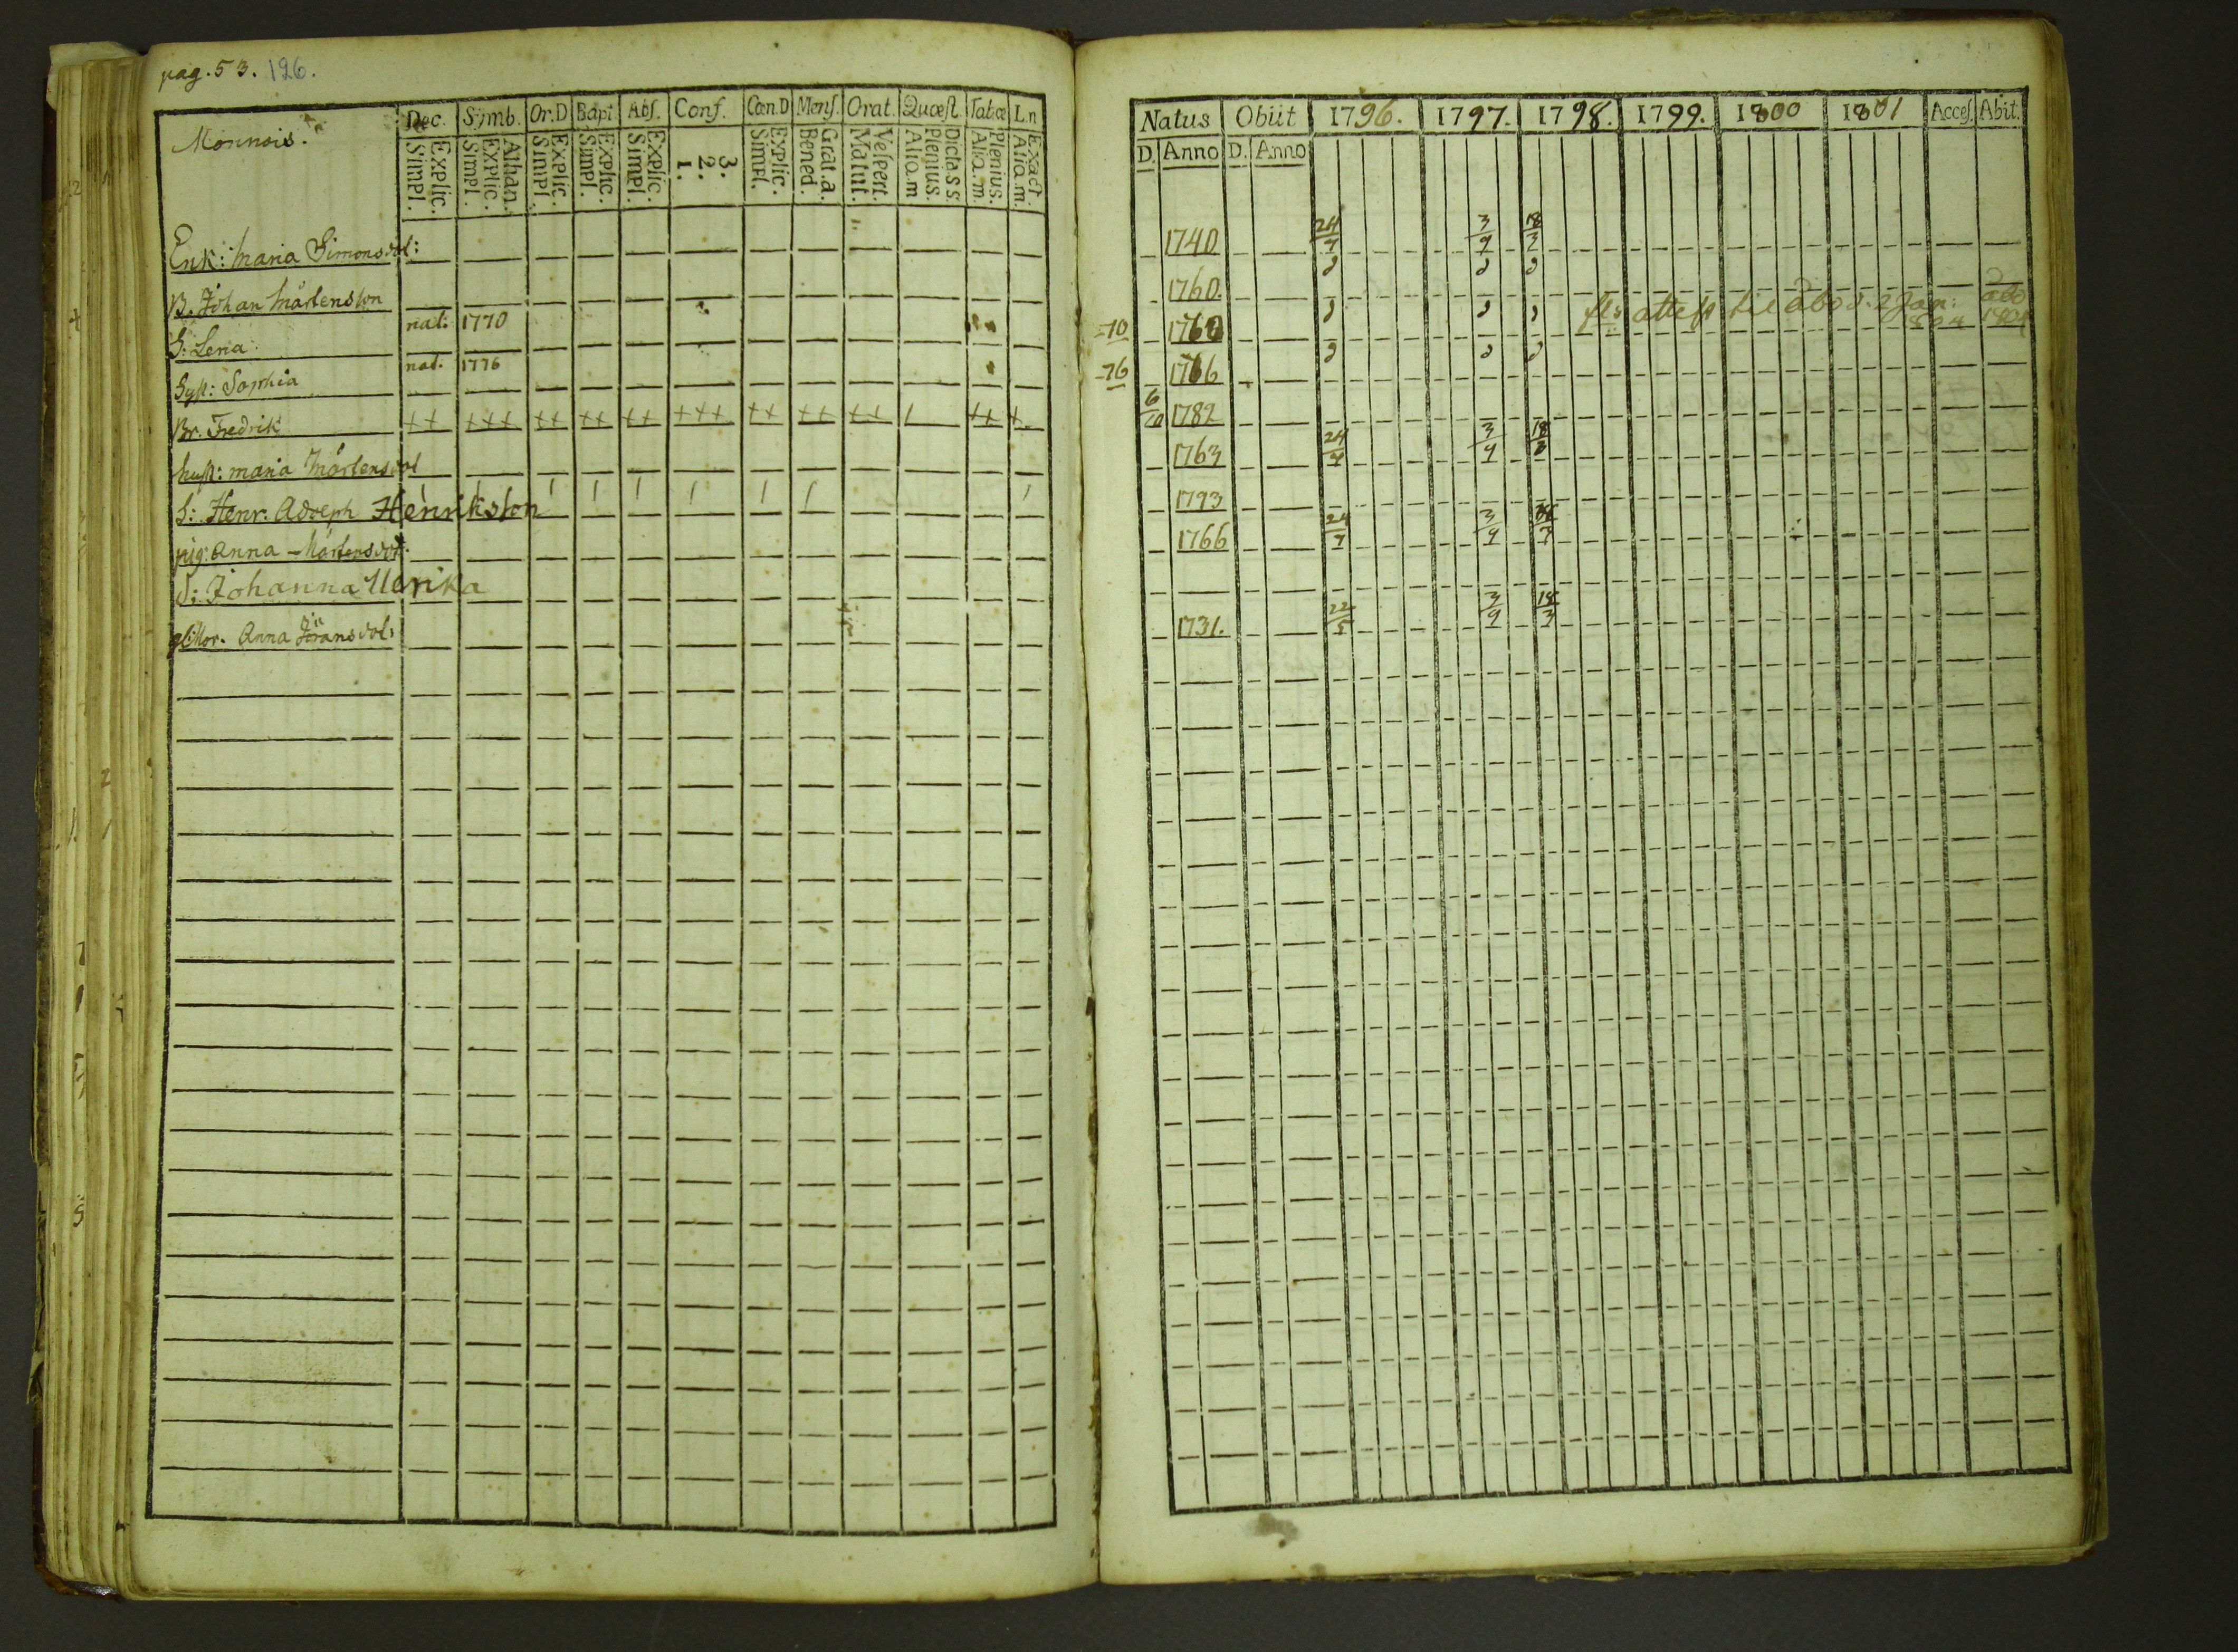 pag. 53. 126.
Monnois.
Dec. Simb. Or.D Bapt. Abs. Conf. Cœn.D Mens. Orat. Quæst. Tabæ L.n
Explic. Simpl. Athan. Explic. Simpl. Explic. Simpl. Explic. Simpl. Explic. Simpl. 3. 2. 1. Explic. Simpl. Grat.a. Bened. Vespert. Matut. Dicta S S. Plenius. Aliq.m Plenius. Aliq.m Exact. Aliq.m.
Enk: Maria Simonsdot:
B. Johan Mårtensson
S: Lena nat: 1770
Syst: Sophia nat. 1776
Br. Fredrik ++ +++ ++ ++ ++ +++ ++ ++ ++ / ++ +
hust: Maria Mårtensdot
S: Henr. Adolph Henriksson
pig: Anna Mårtensdot:
d: Johanna Ulrika
gl: Mor. Anna Jöransdot:
Natus Obiit 1796. 1797. 1798. 1799. 1800 1801 Acces. Abit.
D. Anno D. Anno
1740 24/7 3/9 18/3
1760.
-10 1760 attest til Åbo d. 2 Jan: 1804 Åbo 1804
-76 1766
6/10 1782
1763 24/7 3/9 18/3
1793
1766 24/7 3/9
1731. 22/5 3/9 18/3